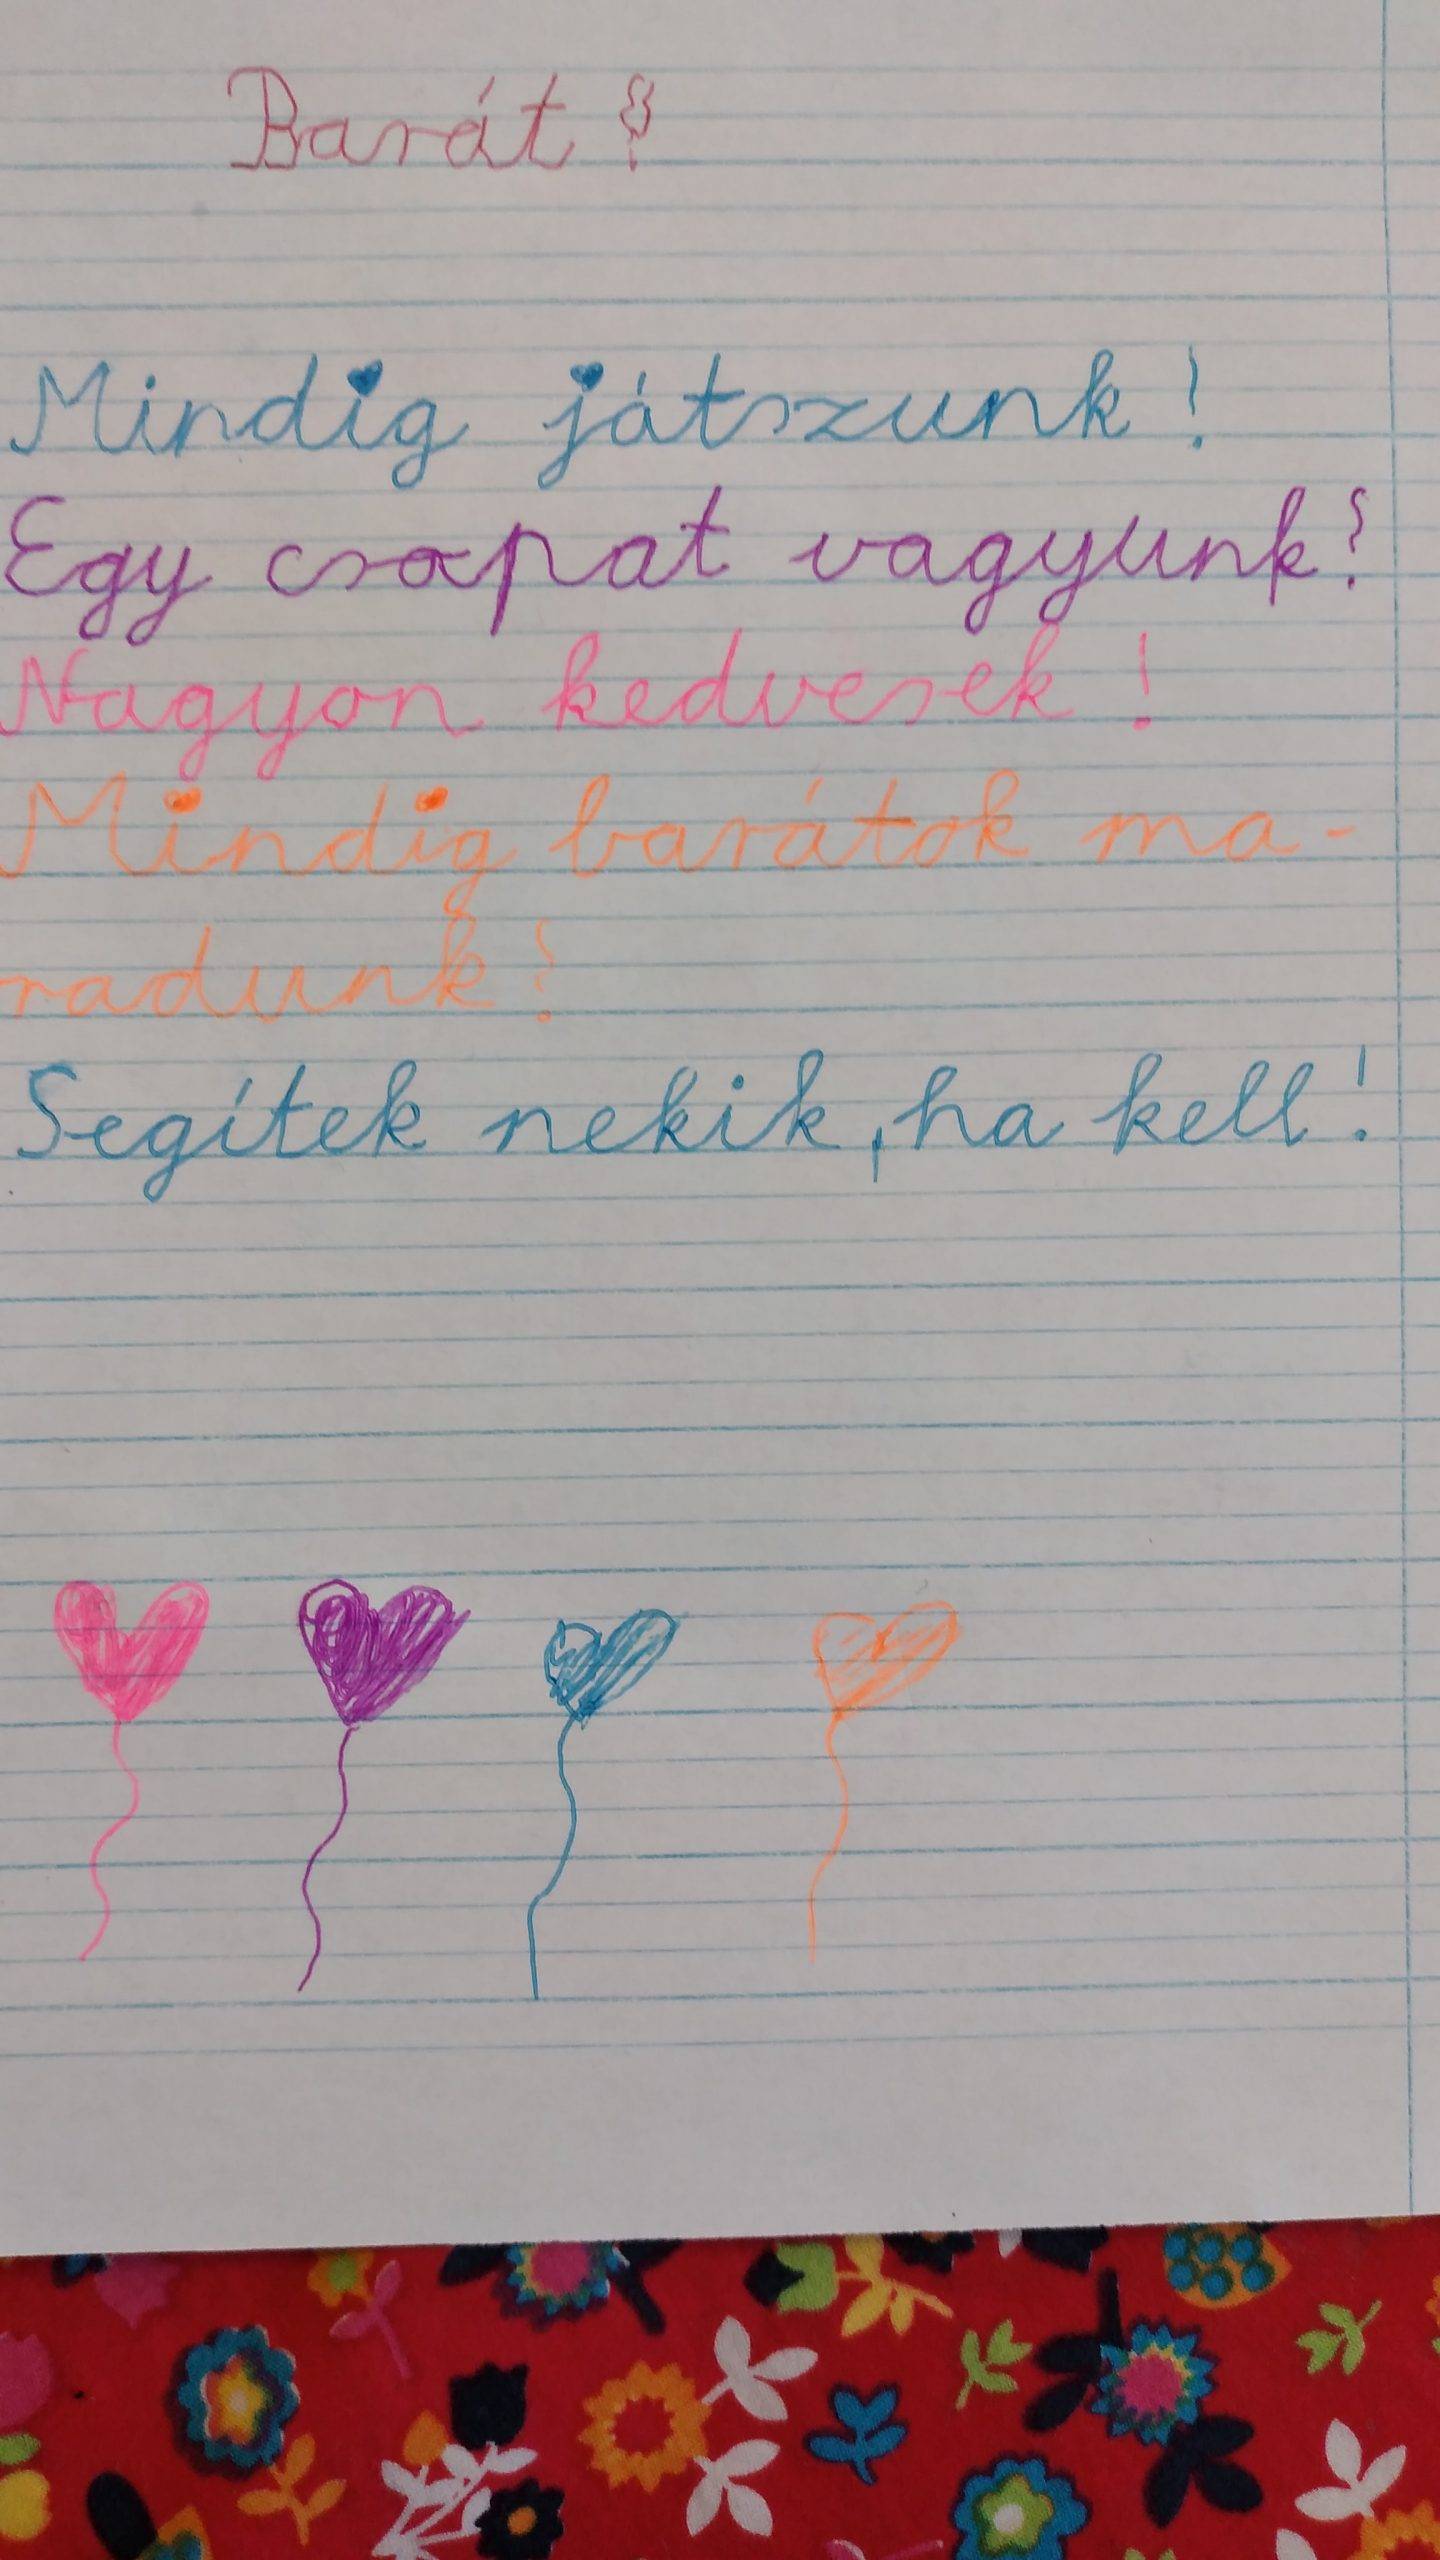 Barát?
Mindig játszunk!
Egy csapat vagyunk?
Nagyon kedvesek!
Mindig barátok ma-
radunk?
Segítek nekik, ha kell!